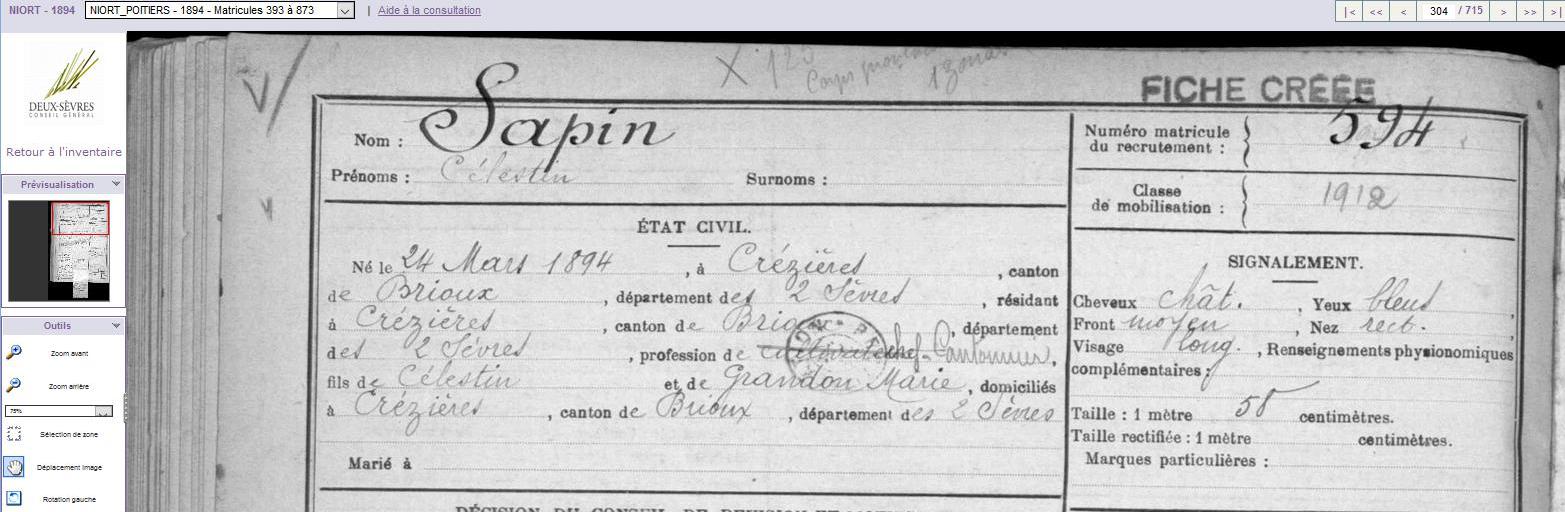 NIORT - 1894 NIORT_POITIERS - 1894 - Matricules 393 à 873 | Aide à la consultation |< << < 304 / 715 > >> >|
DEUX-SÈVRES
CONSEIL GÉNÉRAL
Retour à l'inventaire
Prévisualisation
Outils
Zoom avant
Zoom arrière
75%
Sélection de zone
Déplacement image
Rotation gauche
X 125
Corps
FICHE CRÉÉE
Nom : Sapin
Prénoms : Célestin Surnoms :
Numéro matricule du recrutement : 594
Classe de mobilisation : 1912
ÉTAT CIVIL.
Né le 24 Mars 1894, à Crézières, canton
de Brioux, département des 2 Sèvres, résidant
à Crézières, canton de Brioux, département
des 2 Sèvres, profession de cultivateur chef-Cantonnier,
fils de Célestin et de Grandon Marie, domiciliés
à Crézières, canton de Brioux, département des 2 Sèvres
Marié à
SIGNALEMENT.
Cheveux chât., Yeux bleus
Front moyen, Nez rect.
Visage long., Renseignements physionomiques
complémentaires :
Taille : 1 mètre 58 centimètres.
Taille rectifiée : 1 mètre centimètres.
Marques particulières :
DÉCISION DU CONSEIL DE REVISION ET